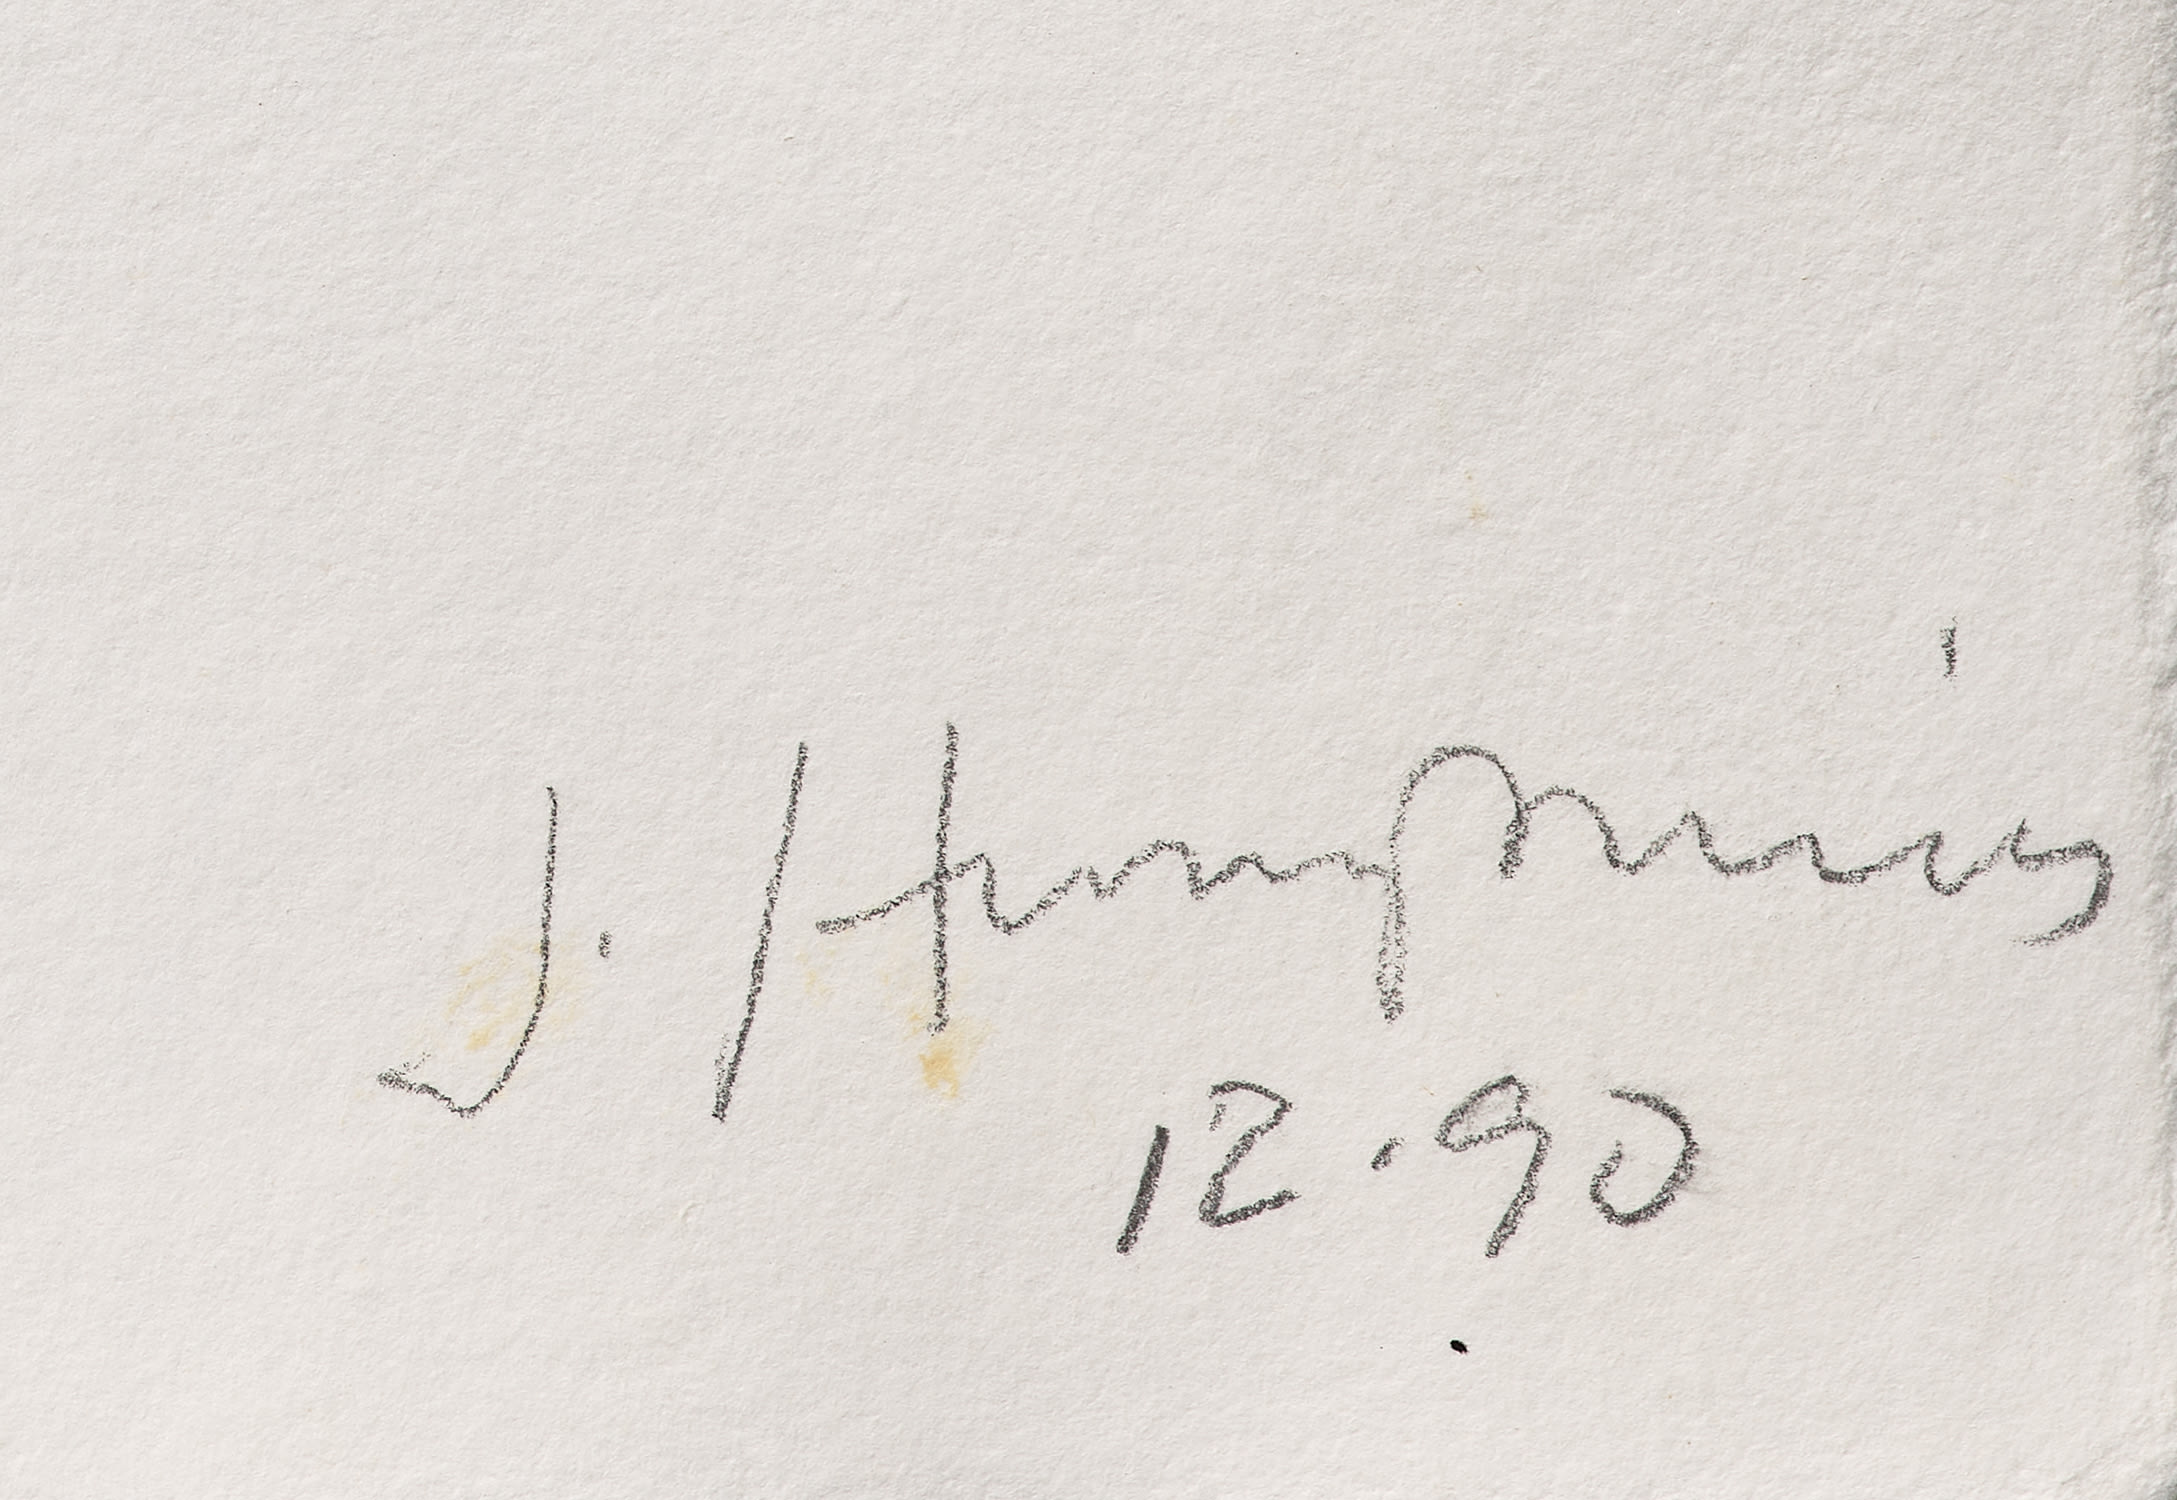 J. Humphries
12.90